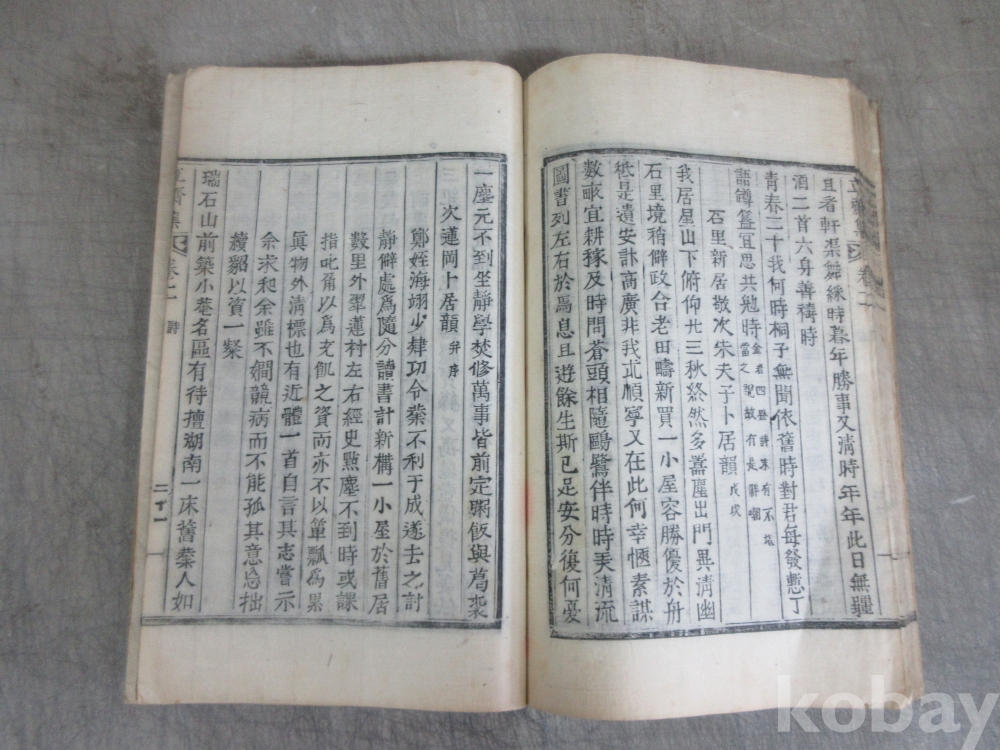 且者軒渠舞綵時暮年勝事又淸時年年此日無疆
酒二首六身善禱時
靑春二十我何時桐子無聞依舊時對君每發慙丁
語罇簋宜思共勉時金君四登時末有不堪
當之說故有是解嘲
石里新居敬次朱夫子卜居韻戊戌
我居星山下俯仰卄三秋終然多囂塵出門異淸幽
石里境稍僻政合老田疇新買一小屋容膝優於舟
數畝宜耕稼及時問蒼頭相隨鷗鷺伴時時弄淸流
祗是遺安計高廣非我求順寧又在此何幸愜素謀
圖書列左右於焉息且遊餘生斯已足安分復何憂
一塵元不到坐靜學焚修萬事皆前定糲飯與葛裘
次蓮岡卜居韻幷序
鄭姪海翊少肄功令業不利于成遂去之討
靜僻處爲隨分讀書計新構一小屋於舊居
數里外翠蓮村左右經史點塵不到時或課
指叱甭以爲充飢之資而亦不以簞瓢爲累
眞物外淸標也有近體一首自言其志嘗示
余求和余雖不嫺競病而不能孤其意忘拙
續貂以資一粲
瑞石山前築小菴名區有待擅湖南一床舊業人如
齋集 卷之二 詩 二十一
kobay